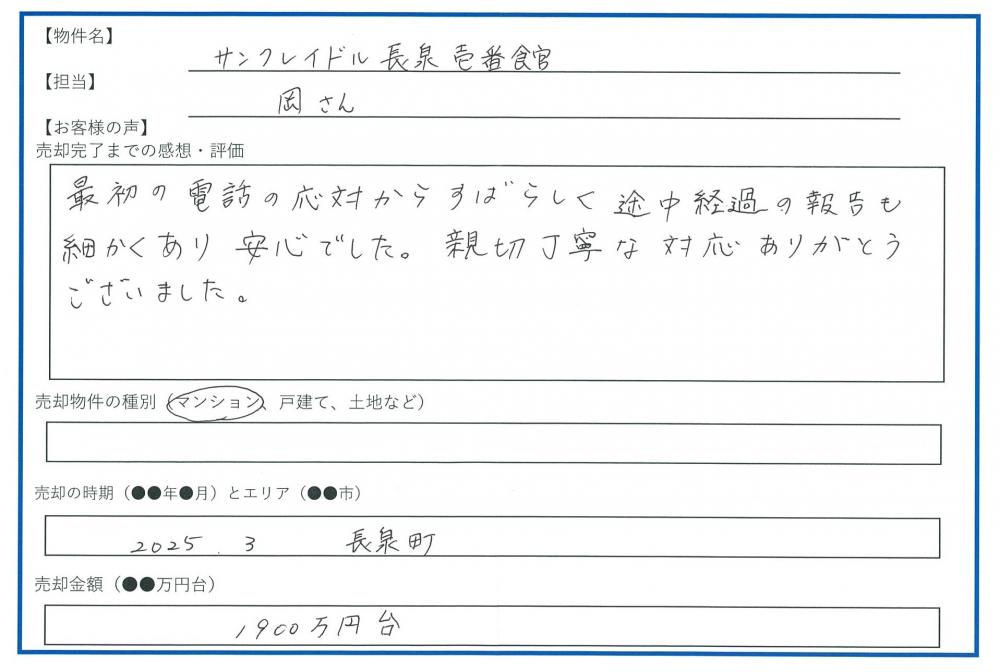 【物件名】
サンクレイドル長泉壱番館
【担当】
岡さん
【お客様の声】
売却完了までの感想・評価
最初の電話の応対からすばらしく途中経過の報告も
細かくあり安心でした。親切丁寧な対応ありがとう
ございました。
売却物件の種別（マンション、戸建て、土地など）
売却の時期（●●年●月）とエリア（●●市）
2025.3 長泉町
売却金額（●●万円台）
1900万円台